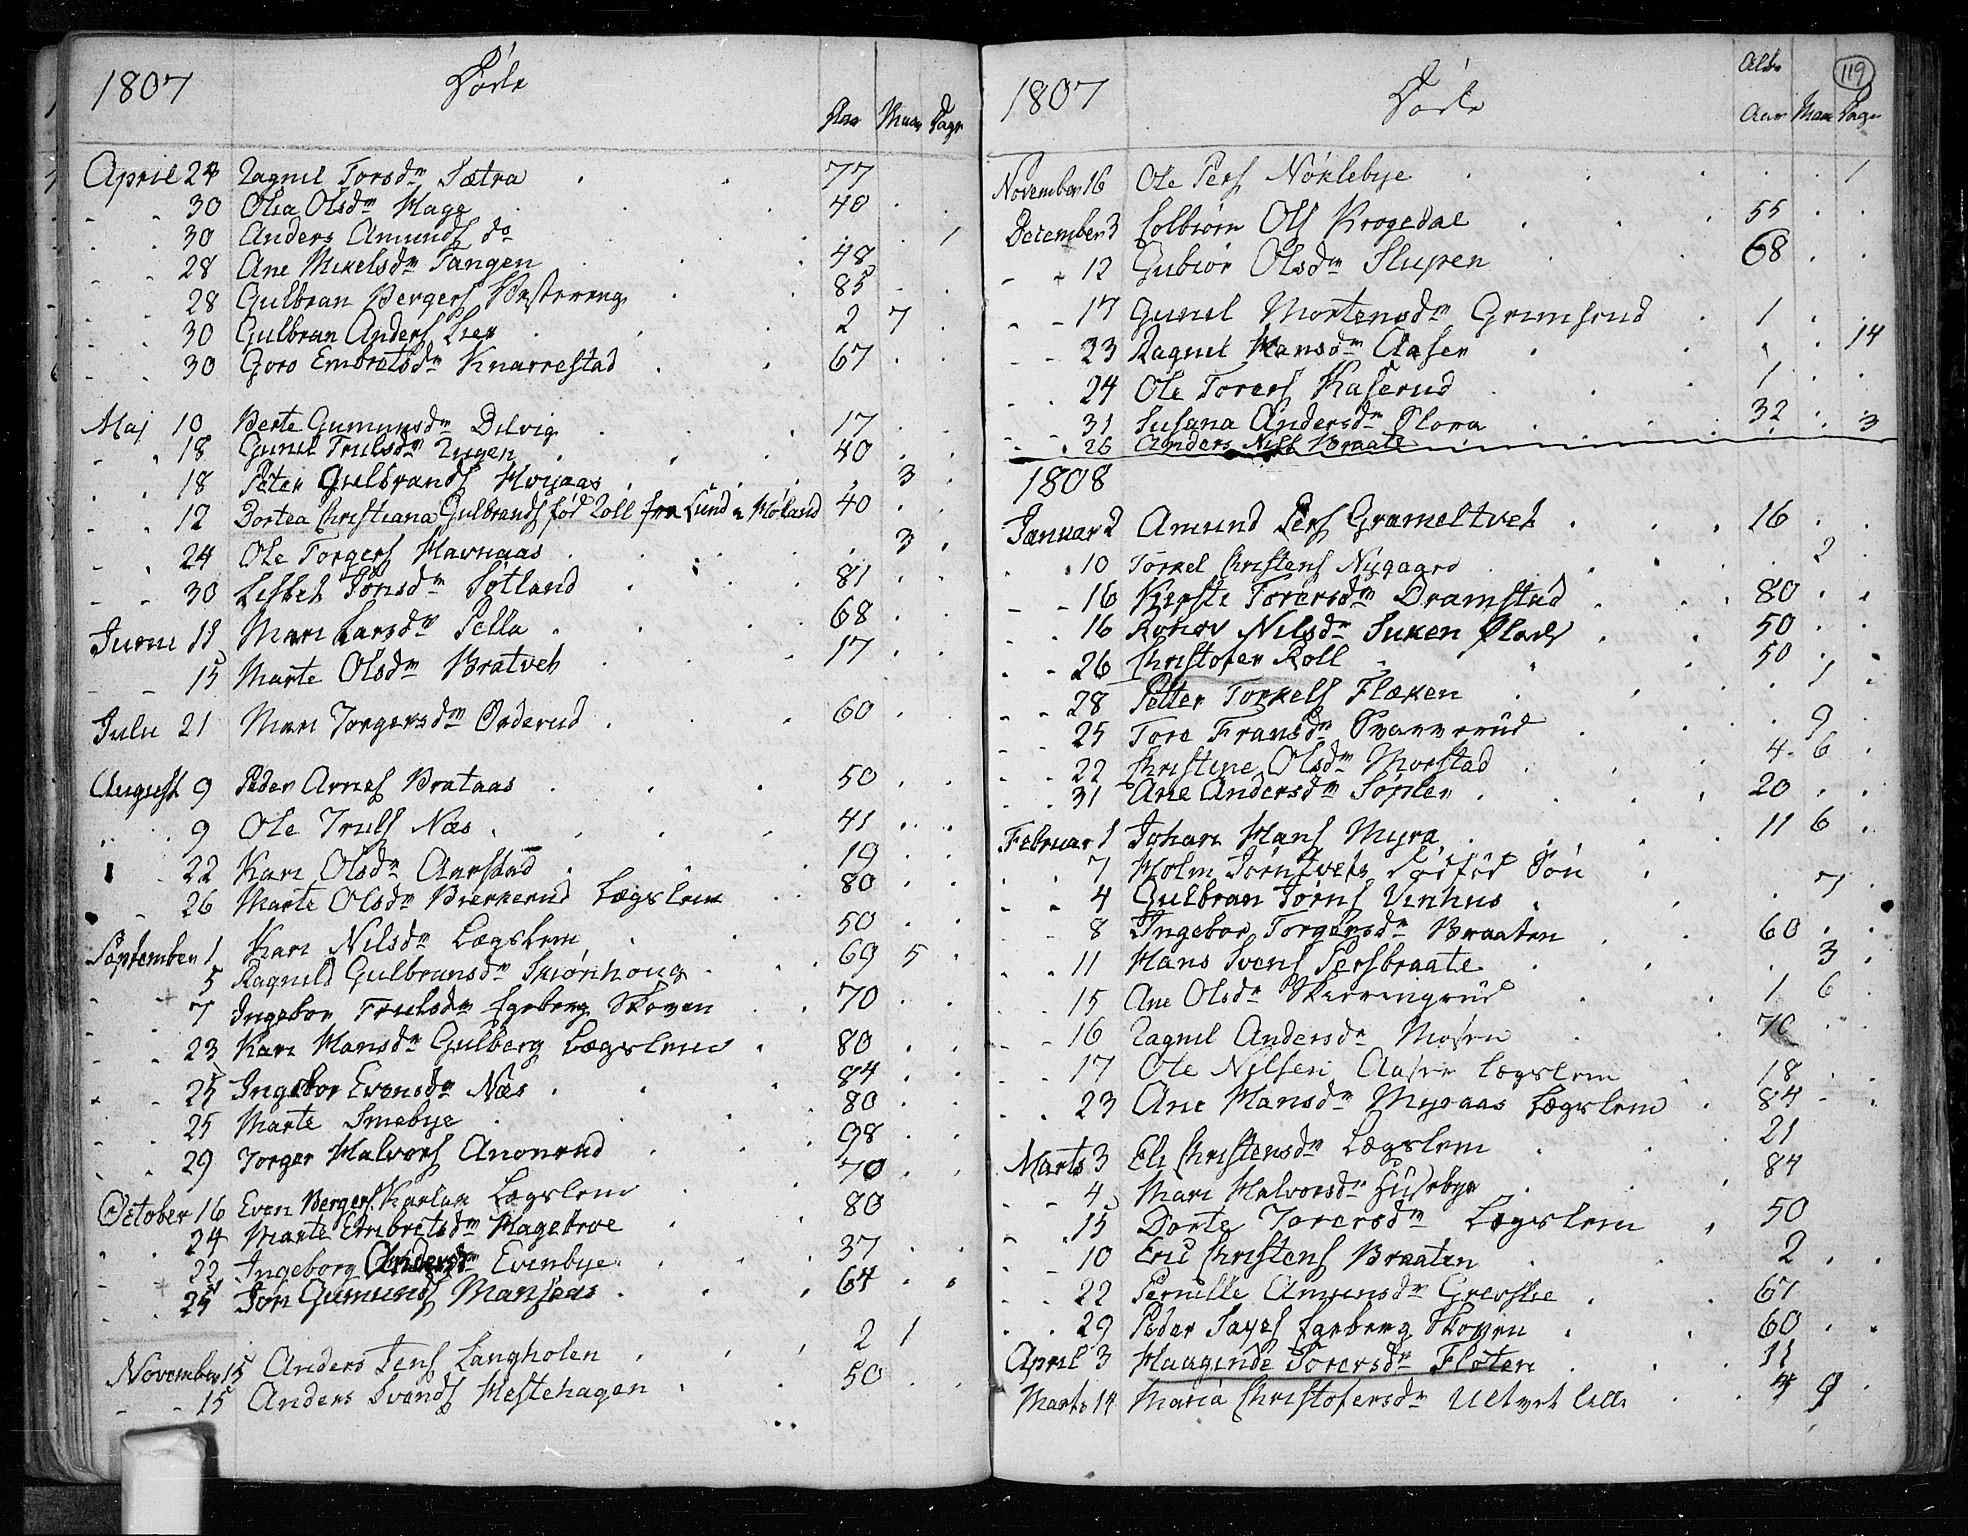 1807 Døde
Aar Maan Dage
April 24 Ragnil Torsdr Sætra 77
30 Olea Olsdr Hage 40
30 Anders Amunds do 1
28 Ane Mikelsdr Tangen 48
28 Gulbran Bergers Vestereng 85
30 Gulbran Anders Lier 2 7
30 Goro Embretsdr Knarrestad 67
Maj 10 Berte Gumunsdr Dilvig 17
18 Gunil Trulsdr 40
18 Peter Gulbrands Hoyaas 3
12 Dortea Christiana Gulbrands fød Roll fra Lund i Høland 40
24 Ole Torgers Havnaas 3
30 Lisbet Jonsdr Sotland 81
Juni 11 Mari Larsdr Pella 68
15 Marte Olsdr Bratvet 17
Juli 21 Mari Torgersdr Orderud 60
August 9 Peder Arnes Brataas 50
9 Ole Truls Næs 41
22 Kari Olsdr Aarstad 19
26 Marte Olsdr Bierkerud Lægslem 80
September 1 Kari Nilsdr Lægslem 50
5 Ragnild Gulbransdr Skiønhoug 69 5
7 Ingebor Trulsdr Egeberg Skoven 70
23 Kari Hansdr Gulberg Lægslem 80
25 Ingebor Evensdr Næs 84
25 Marte Smebye 80
29 Torger Halvors Anonrud 98
October 16 Even Bergers Lægslem 70
24 Marte Embretsdr Hagebroe 80
22 Ingeborg Andersdr Evenbye 37
24 Jon Gumunds Mansaas 64
November 15 Anders Jens Langholen 2 1
15 Anders Svends Hestehagen 50
119
1807 Døde
Alder
Aar Maan Dage
November 16 Ole Pers Nøklebye 1
December 3 Colbiørn Ols Krogedal 55
12 Gubiør Olsdr Slupen 68
17 Gunil Mortensdr Grimsrud 1
23 Ragnil Hansdr Aasen 14
24 Ole Torers Kaserud 1
31 Susana Andersdr Flora 32
26 Anders Nils Braate 3
1808
Januar 2 Amund Pers Grameltvet 16
10 Torkel Christens Nygaard 2
16 Kierste Torersdr Dramstad 80
16 Ronov Nilsdr Suken Plads 50
26 Christofer Roll 50
28 Petter Torkels Flæken 1
25 Tore Fransdr Svarverud 9
22 Christine Olsdr Morstad 4 6
31 Ane Andersdr Soplen 20
Februar 1 Johan Hans Myra 11 6
7 Holm Jørntvets dødfød Søn
4 Gulbran Jørns Vinhus 7
8 Ingebor Torgersdr Braaten 60
11 Hans Svens Persbraate 3
15 Ane Olsdr Skierringrud 1 6
16 Ragnil Andersdr Mosen 70
17 Ole Nilsen Aasen Lægslem 18
23 Ane Hansdr Myraas Lægslem 84
Marts 3 Eli Christensdr Lægslem 21
4 Mari Halvorsdr Husebye 84
15 Dorte Torersdr Lægslem 50
10 Eric Christens Braaten 2
22 Pernille Amunsdr Grevskie 67
29 Peder Sayes Egeberg Skoven 60
April 3 Haaginde Torersdr Floten 11
Marts 14 Maria Christofersdr Ultvet lille 4 9